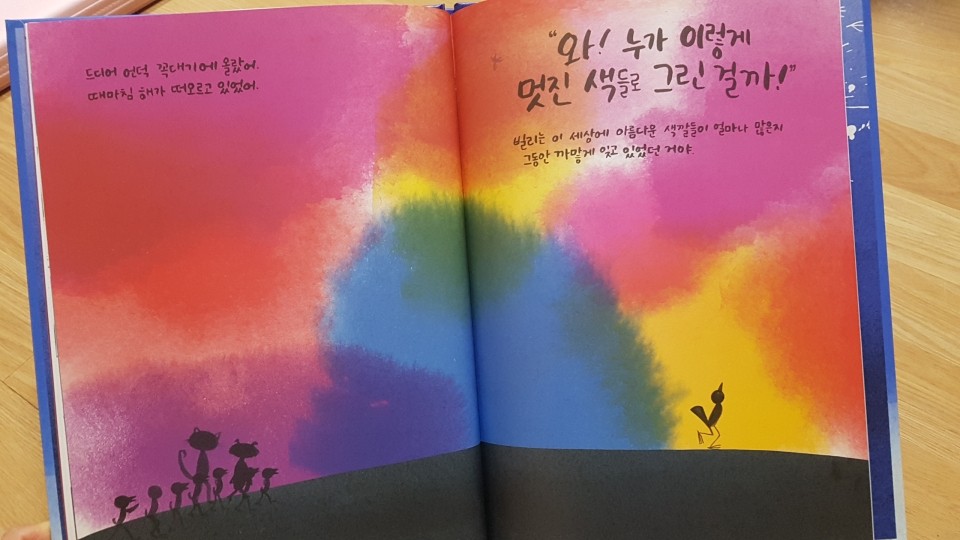 드디어 언덕 꼭대기에 올랐어.
때마침 해가 떠오르고 있었어.
"와! 누가 이렇게
멋진 색들로 그린 걸까!"
빌리는 이 세상에 아름다운 색깔들이 얼마나 많은지
그동안 까맣게 잊고 있었던 거야.